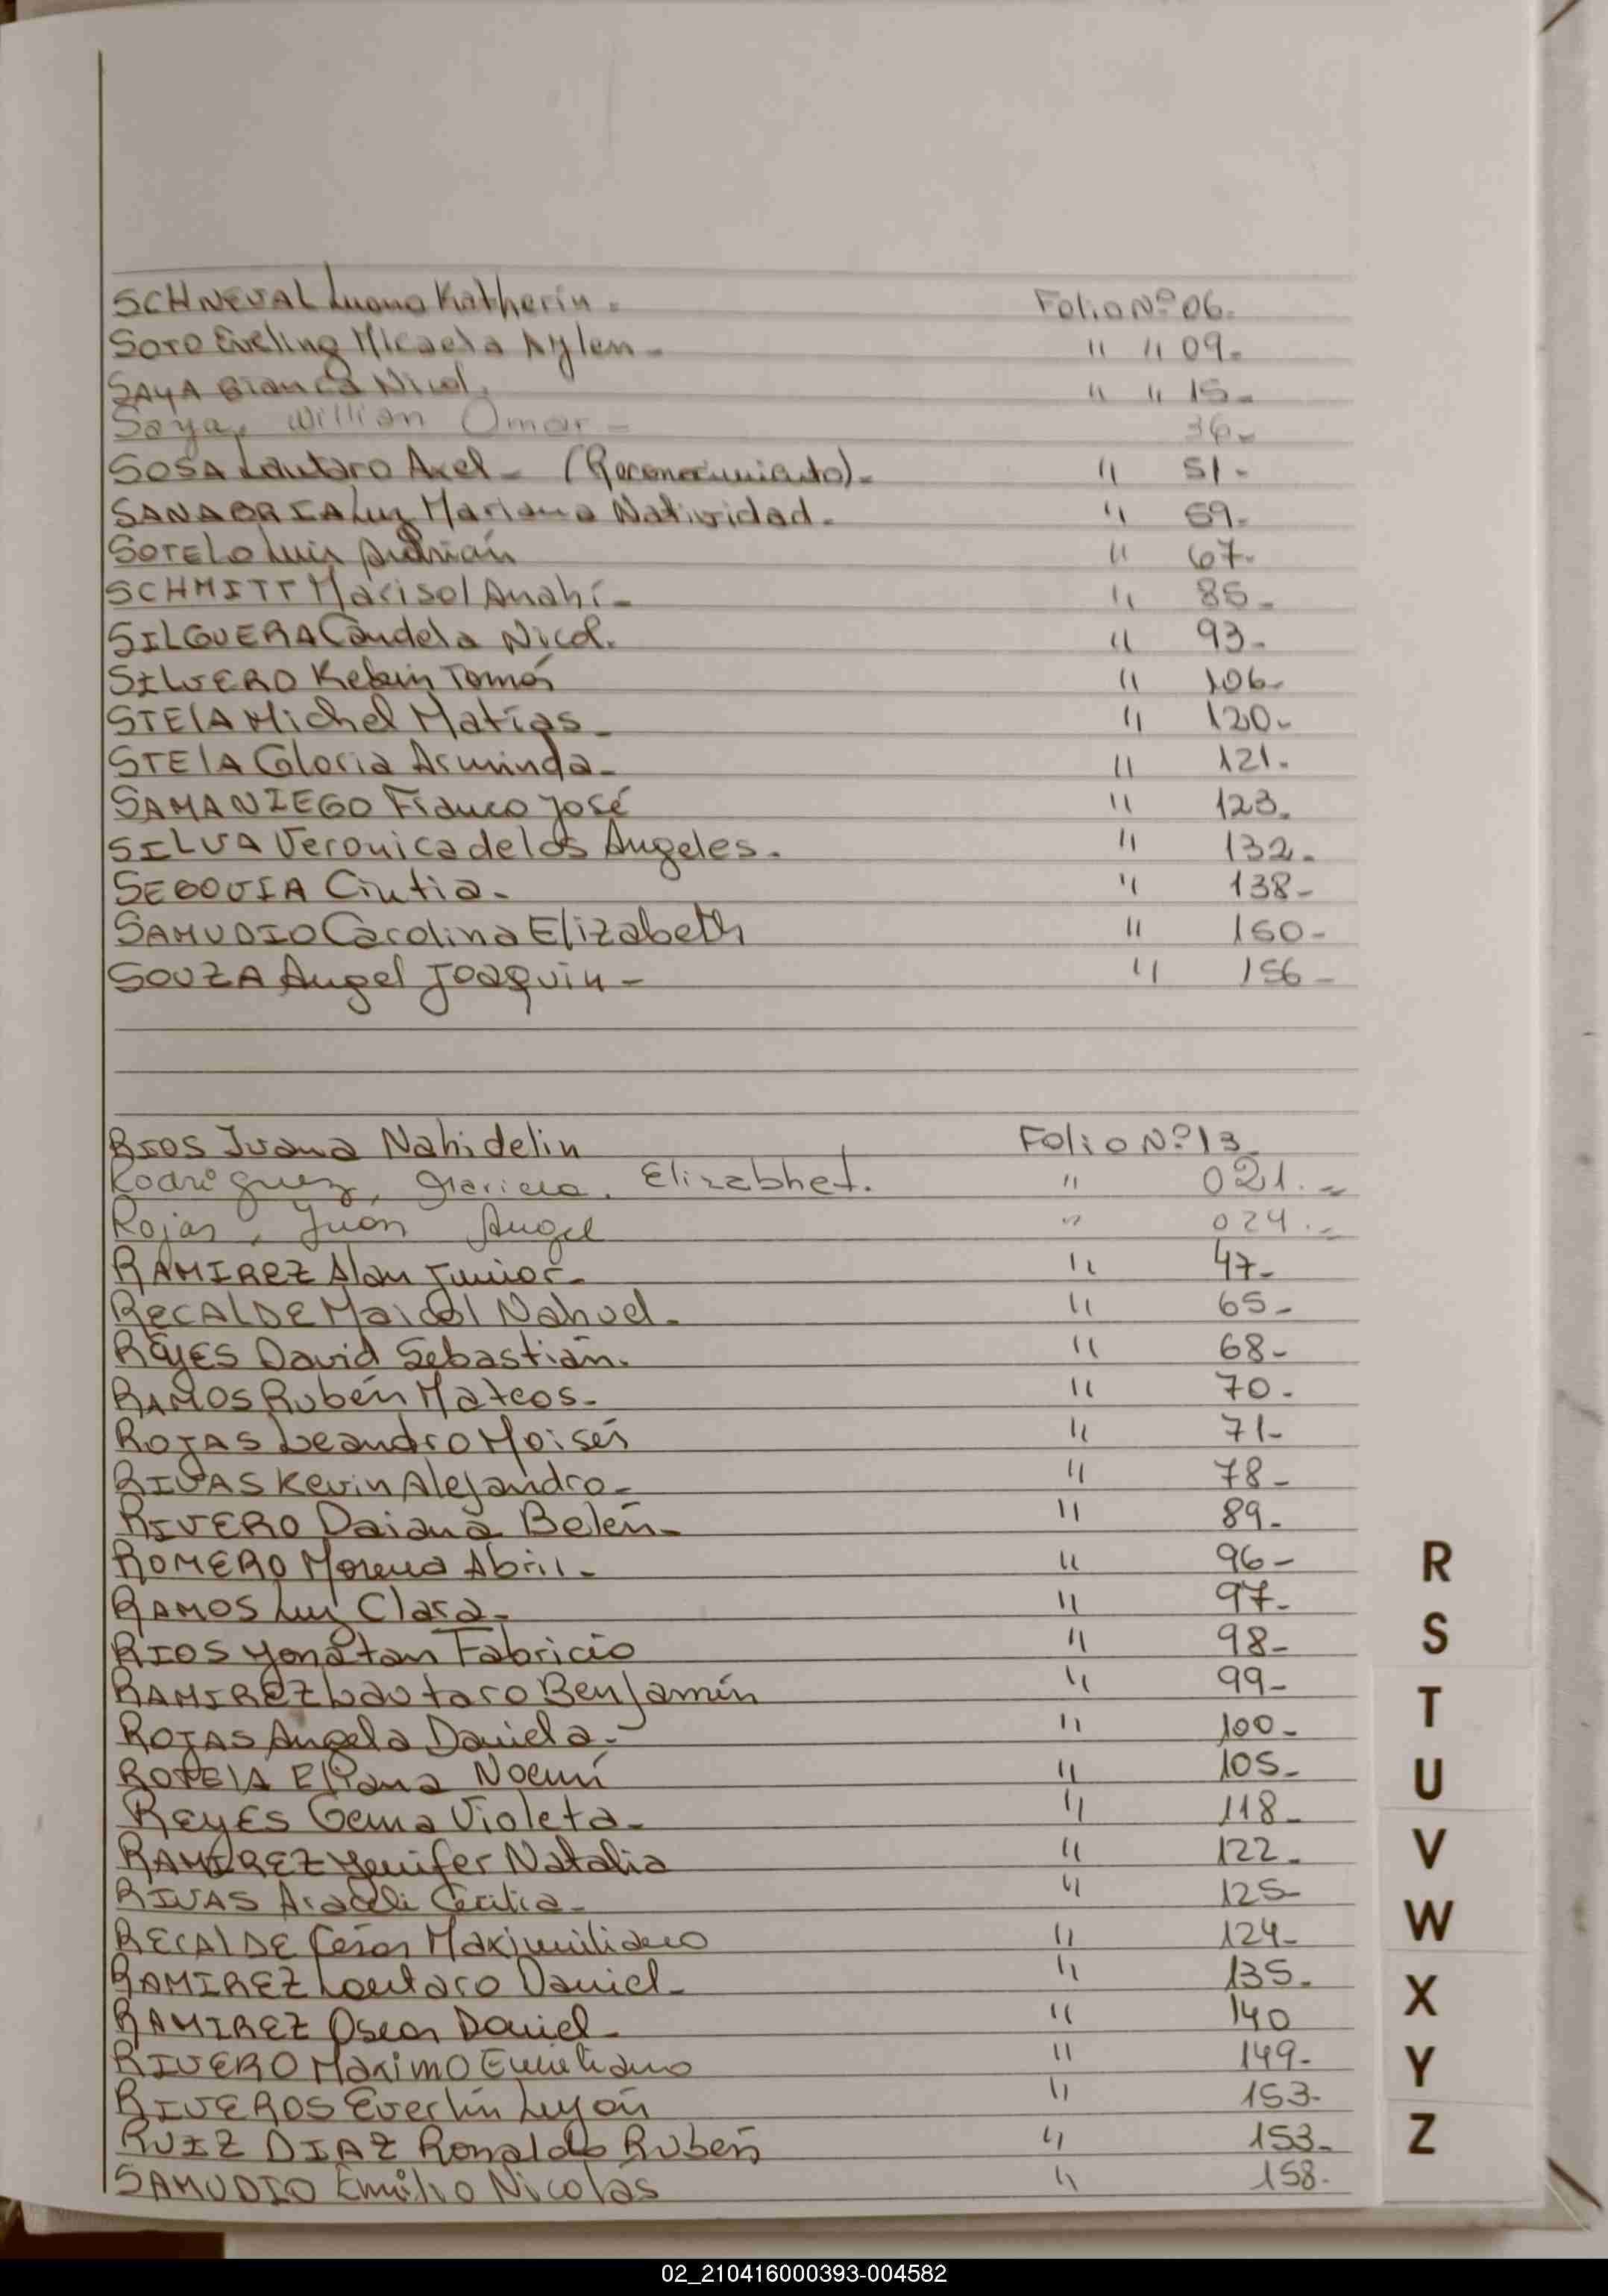 SCHNEVAL Luana Katherin. Folio Nº 06.
SOTO Eveling Micaela Aylen - " " 09.
SAYA Bianca Nicol. " " 15-
Saya, Willian Omar - 36-
SOSA Lautaro Axel - (Reconocimiento)- " 51-
SANABRIA Luz Mariana Natividad. " 59-
SOTELO Luis Adrián " 67-
SCHMITT Marisol Anahí- " 85-
SILGUERA Candela Nicol. " 93-
SILVERO Kebin Tomás " 106-
STElA Michel Matías- " 120-
STElA Gloria Arminda- " 121-
SAMANIEGO Franco José " 123.
SILVA Veronica de los Angeles. " 132-
SEGOVIA Cintia- " 138-
SAMUDIO Carolina Elizabeth " 150-
SOUZA Angel JOAQUIN- " 156-
RIOS Juana Nahidelin Folio Nº 13
Rodriguez, Mariela. Elizabhet. " 021.-
Rojas, Juan Angel " 024.-
RAMIREZ Alan Junior- " 47-
RECALDE Maicol Nahuel- " 65-
REYES David Sebastián. " 68-
RAMOS Rubén Mateos- " 70-
ROJAS Leandro Moisés " 71-
RIVAS Kevin Alejandro- " 78-
RIVERO Daiana Belén- " 89-
ROMERO Morena Abril- " 96-
RAMOS Luz Clara- " 97-
RIOS Yonatan Fabricio " 98-
RAMIREZ Lautaro Benjamín " 99-
ROJAS Angela Daniela- " 100-
ROTElA Eliana Noemí " 105-
REYES Gema Violeta- " 118-
RAMIREZ Yenifer Natalia " 122-
RIVAS Araceli Cecilia- " 125-
RECAlDE César Maximiliano " 124-
RAMIREZ Lautaro Daniel- " 135-
RAMIREZ Oscar Daniel- " 140
RIVERO Maximo Emiliano " 149-
RIVEROS Everlin Luján " 153-
RUIZ DIAZ Ronaldo Rubén " 153-
SAMUDIO Emilio Nicolas " 158-
R
S
T
U
V
W
X
Y
Z
02_210416000393-004582